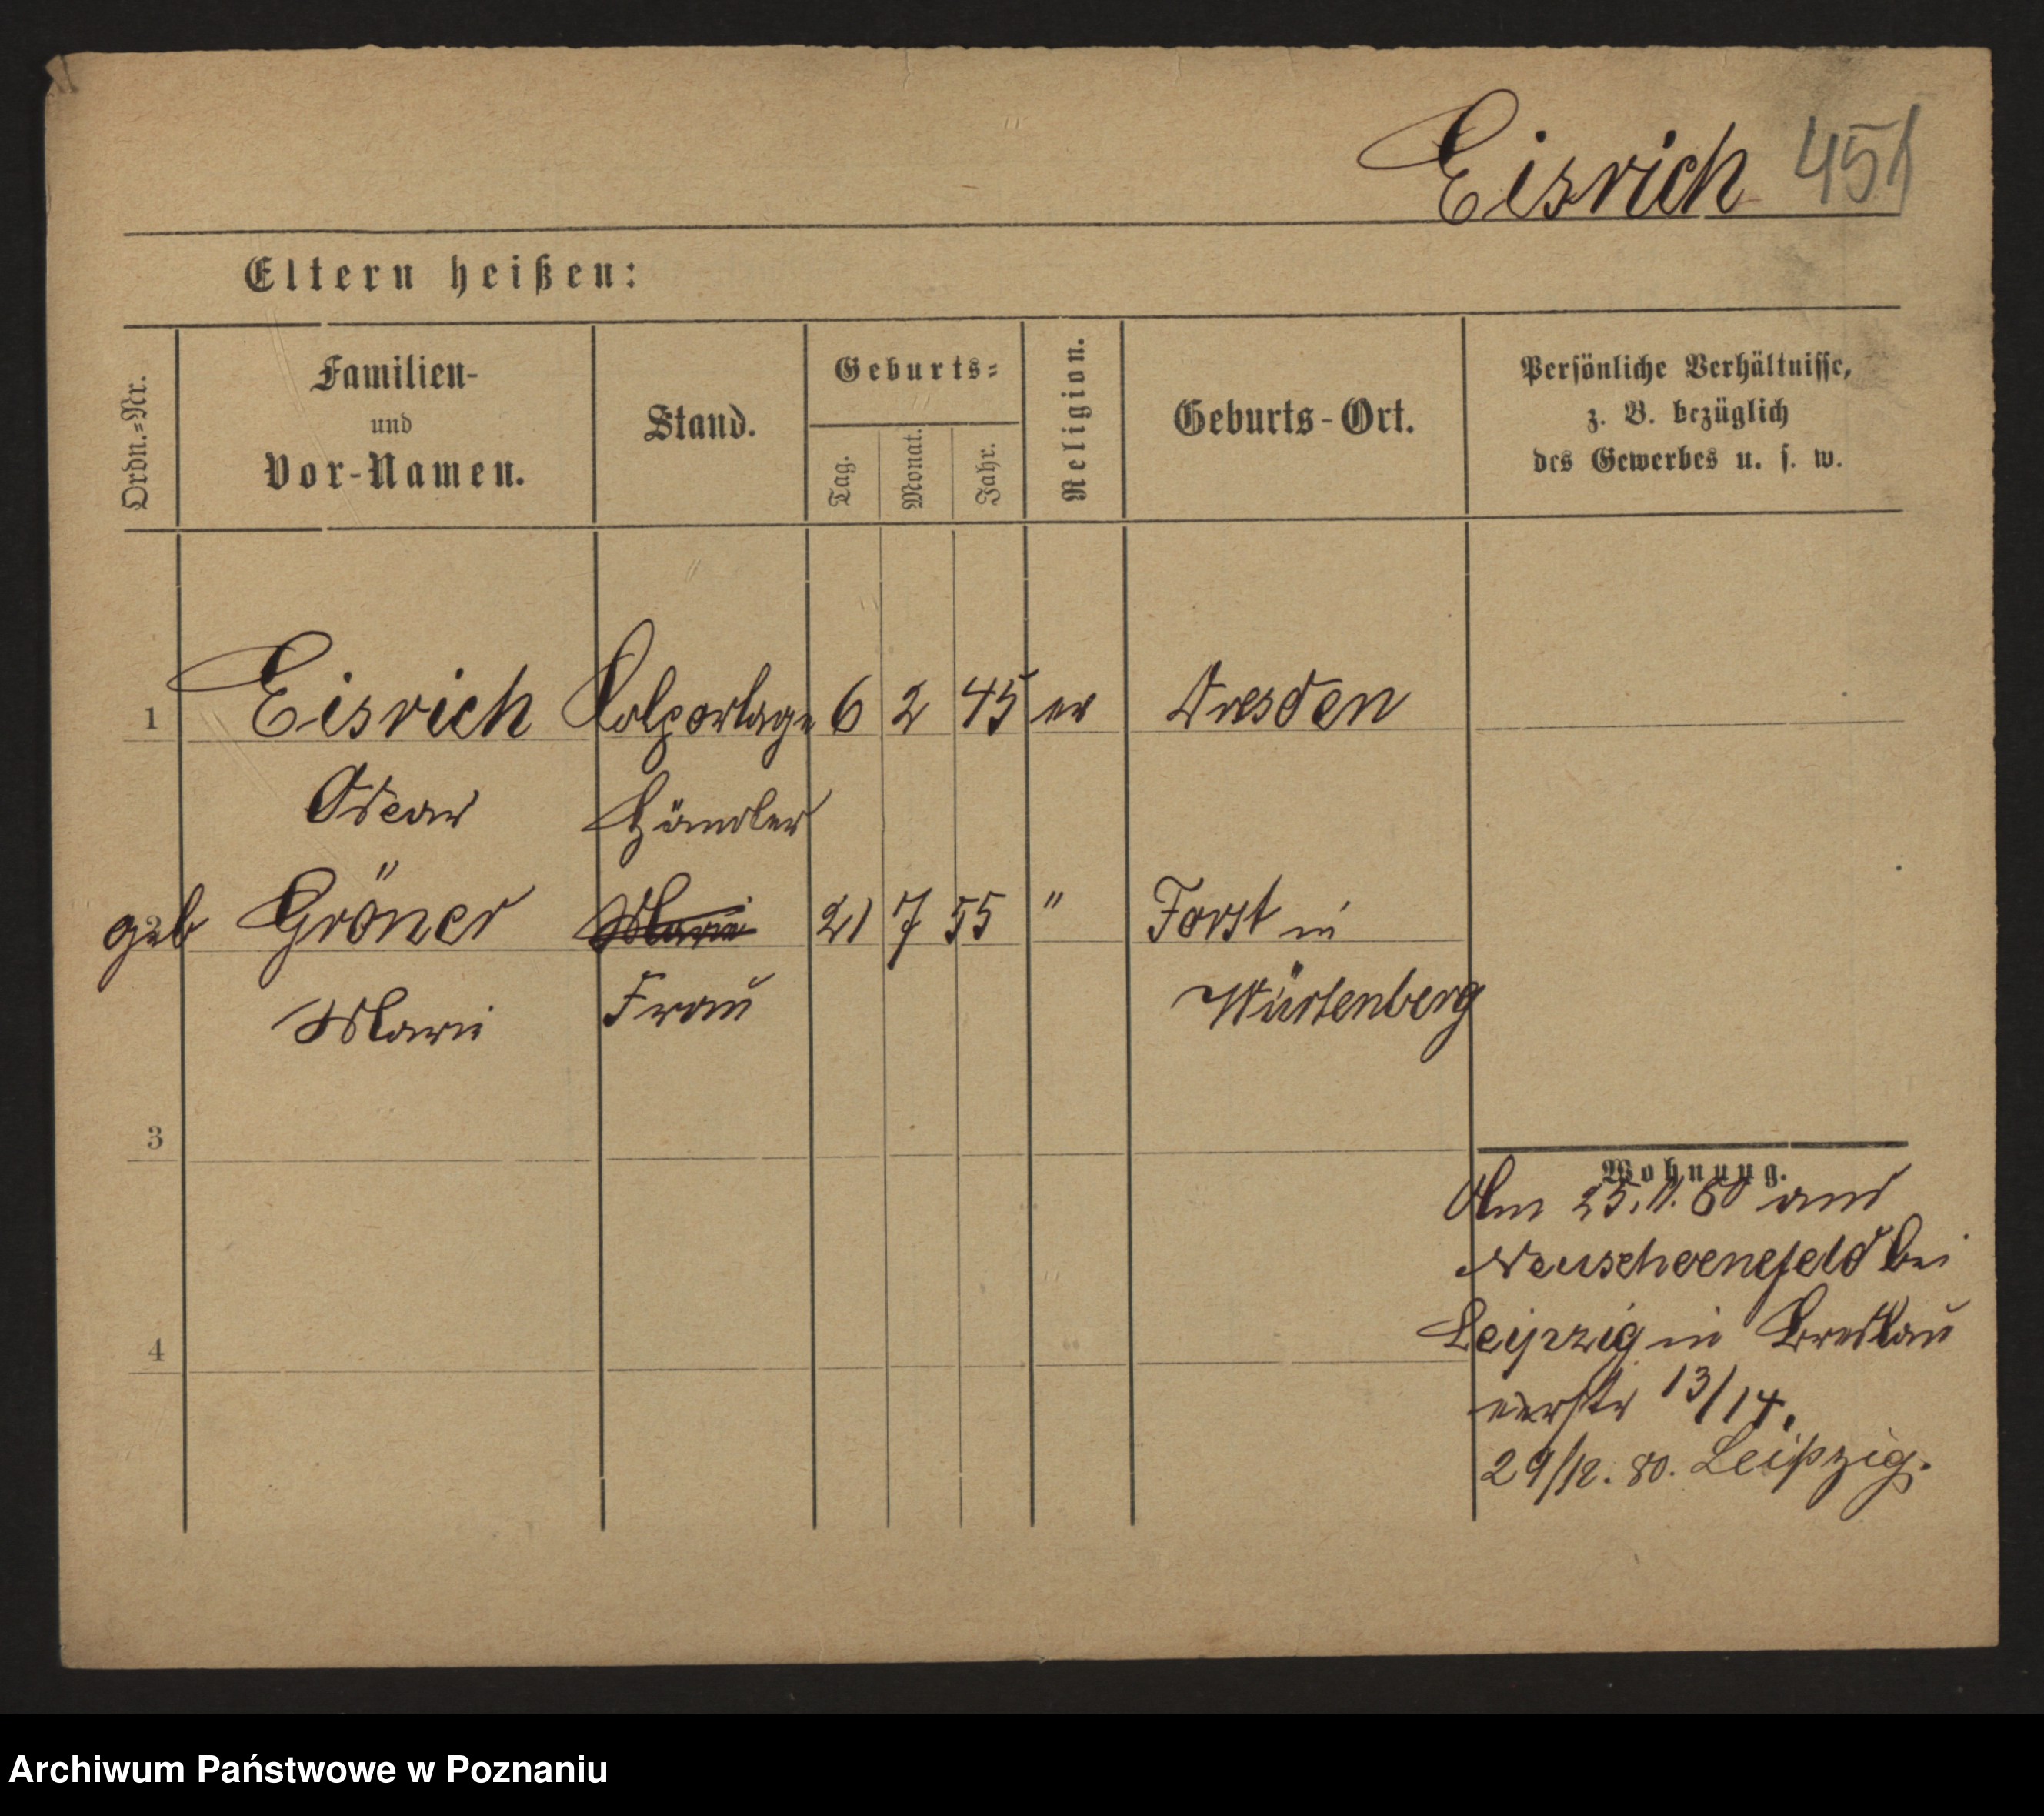 Eisrich 451
Eltern heißen:
Ordn.=Nr.
Familien-
und
Vor-Namen.
Stand.
Geburts=
Tag.
Monat.
Jahr.
Religion.
Geburts-Ort.
Persönliche Verhältnisse,
z. B. bezüglich
des Gewerbes u. s. w.
1 Eisrich Colportage 6 2 45 ev Dresden
Oscar Händler
geb 2 Gröner Marie 21 7 55 " Forst in
Marie Frau Würtenberg
3
Wohnung.
Am 25.11.80 aus
Neuschoenefeld bei
Leipzig in Breslau
4
erstr 13/14.
29/12. 80. Leipzig.
Archiwum Państwowe w Poznaniu